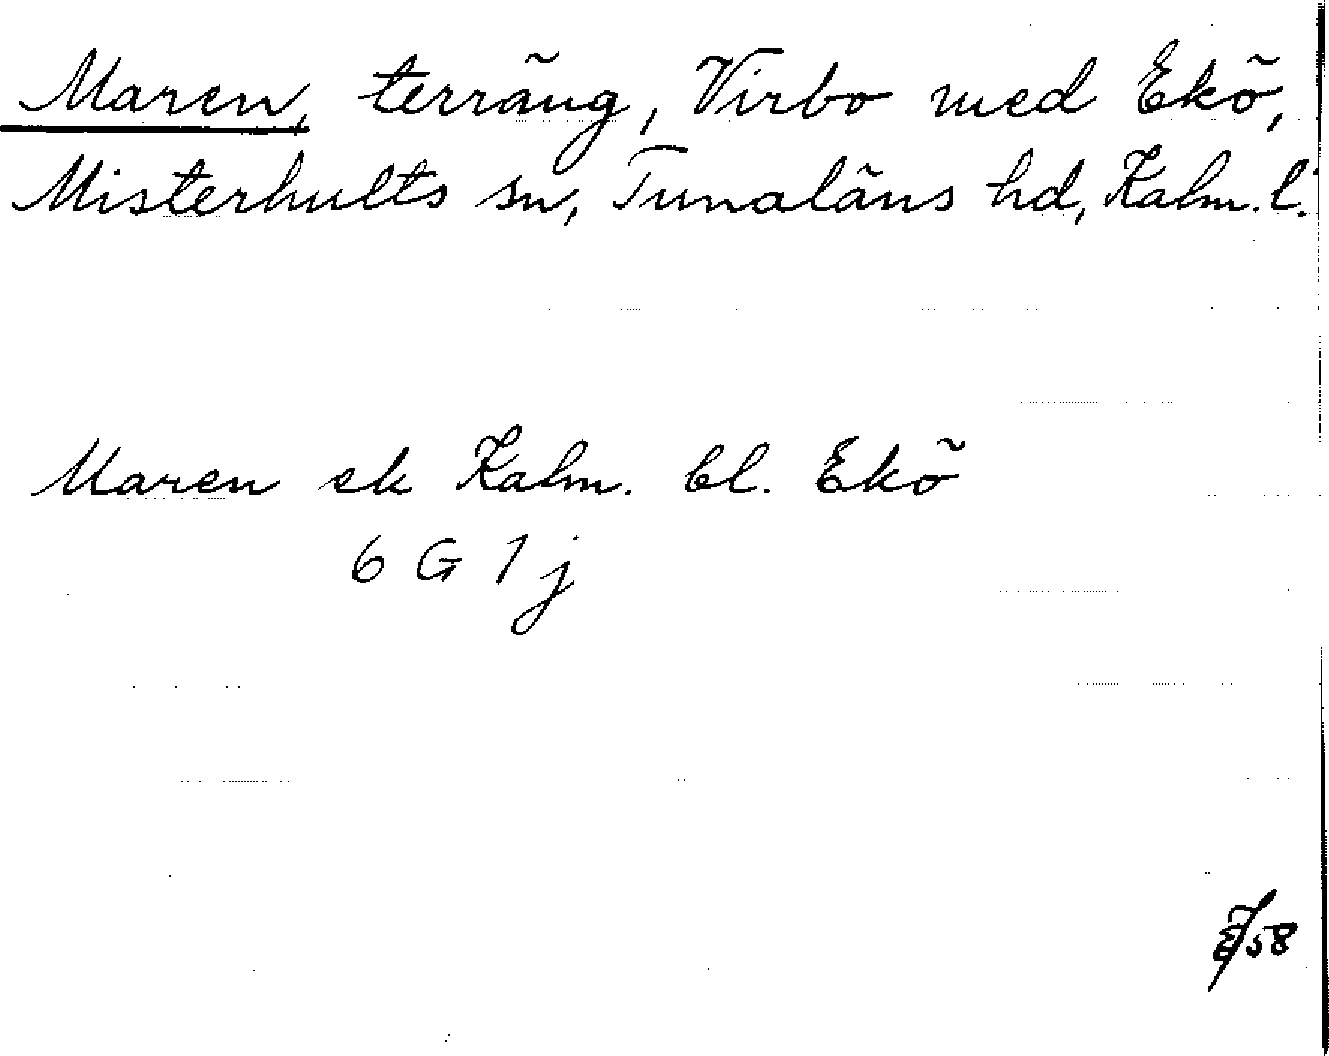 Maren, terräng, Virbo med Ekö,
Misterhults sn, Tunaläns hd, Kalm. l.
Maren ek Kalm. bl. Ekö
6 G 1 j
58